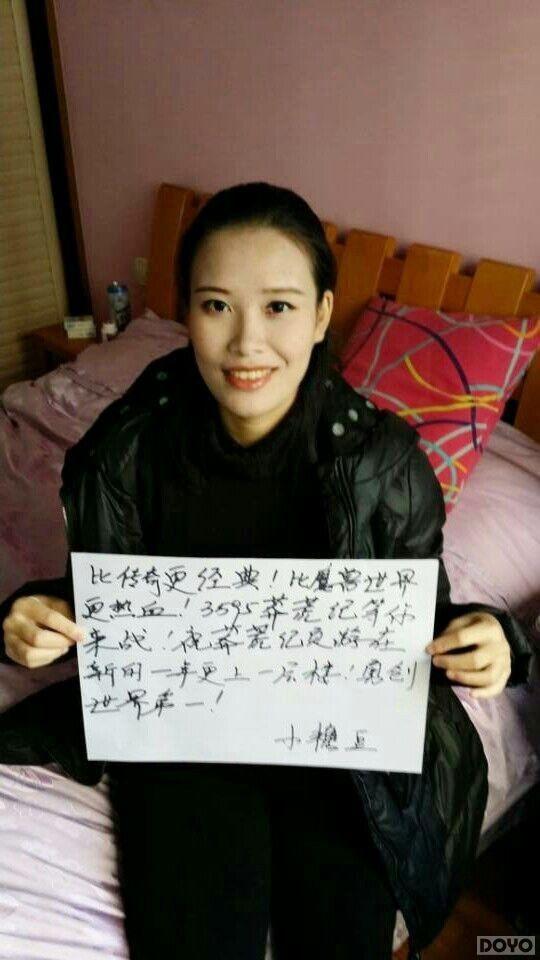 比传奇更经典！比魔兽世界
更热血！3595莽荒纪等你
来战！祝莽荒纪页游在
新的一年更上一层楼！勇创
世界第一！
小糖豆
DOYO